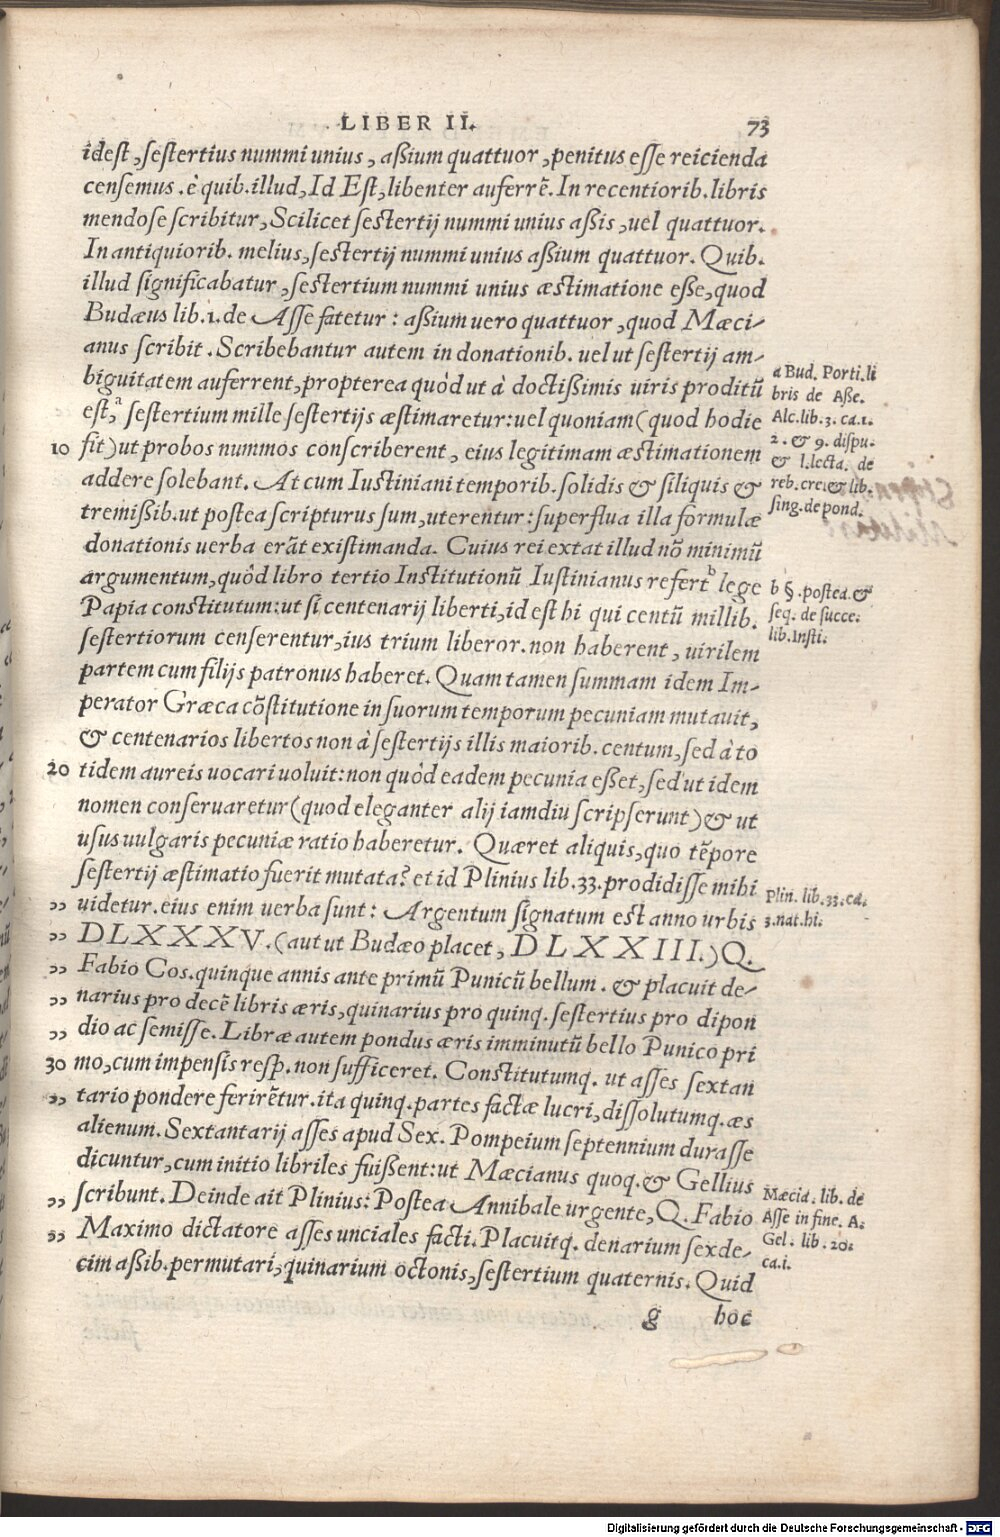 LIBER II. 73
idest, sestertius nummi unius, aßium quattuor, penitus esse reicienda
censemus. è quib. illud, Id Est, libenter auferrē. In recentiorib. libris
mendose scribitur, Scilicet sestertij nummi unius aßis, uel quattuor.
In antiquiorib. melius, sestertij nummi unius aßium quattuor. Quib.
illud significabatur, sestertium nummi unius æstimatione eße, quod
Budæus lib.1. de Asse fatetur: aßium uero quattuor, quod Mæci-
anus scribit. Scribebantur autem in donationib. uel ut sestertij am-
biguitatem auferrent, propterea quòd ut à doctißimis uiris proditū
est,ᵃ sestertium mille sestertijs æstimaretur: uel quoniam (quod hodie
10 fit) ut probos nummos conscriberent, eius legitimam æstimationem
addere solebant. At cum Iustiniani temporib. solidis & siliquis &
tremißib. ut postea scripturus sum, uterentur: superflua illa formulæ
donationis uerba erāt existimanda. Cuius rei extat illud nō minimū
argumentum, quòd libro tertio Institutionū Iustinianus refertᵇ lege
Papia constitutum: ut si centenarij liberti, id est hi qui centū millib.
sestertiorum censerentur, ius trium liberor. non haberent, uirilem
partem cum filijs patronus haberet. Quam tamen summam idem Im-
perator Græca cōstitutione in suorum temporum pecuniam mutauit,
& centenarios libertos non à sestertijs illis maiorib. centum, sed à to
20 tidem aureis uocari uoluit: non quòd eadem pecunia eßet, sed ut idem
nomen conseruaretur (quod eleganter alij iamdiu scripserunt) & ut
usus uulgaris pecuniæ ratio haberetur. Quæret aliquis, quo tēpore
sestertij æstimatio fuerit mutata? et id Plinius lib. 33. prodidisse mihi
,, uidetur. eius enim uerba sunt: Argentum signatum est anno urbis
,, DLXXXV. (aut ut Budæo placet, DLXXIII.) Q.
,, Fabio Cos. quinque annis ante primū Punicū bellum. & placuit de-
,, narius pro decē libris æris, quinarius pro quinq. sestertius pro dipon
,, dio ac semisse. Libræ autem pondus æris imminutū bello Punico pri
30 mo, cum impensis resp. non sufficeret. Constitutumq. ut asses sextan
,, tario pondere ferirētur. ita quinq. partes factæ lucri, dissolutumq. æs
alienum. Sextantarij asses apud Sex. Pompeium septennium durasse
dicuntur, cum initio libriles fuißent: ut Mæcianus quoq. & Gellius
,, scribunt. Deinde ait Plinius: Postea Annibale urgente, Q. Fabio
,, Maximo dictatore asses unciales facti. Placuitq. denarium sexde-
cim aßib. permutari, quinarium octonis, sestertium quaternis. Quid
g hoc
a Bud. Porti. li
bris de Aße.
Alc. lib. 3. ca. 1.
2. & 9. dispu.
& l. lecta. de
reb. cre. & lib.
sing. de pond.
b §. postea. &
seq. de succe.
lib. Insti.
Plin. lib. 33. ca.
3. nat. hi.
Mæcia. lib. de
Asse in fine. A.
Gel. lib. 20.
ca. i.
Digitalisierung gefördert durch die Deutsche Forschungsgemeinschaft - DFG